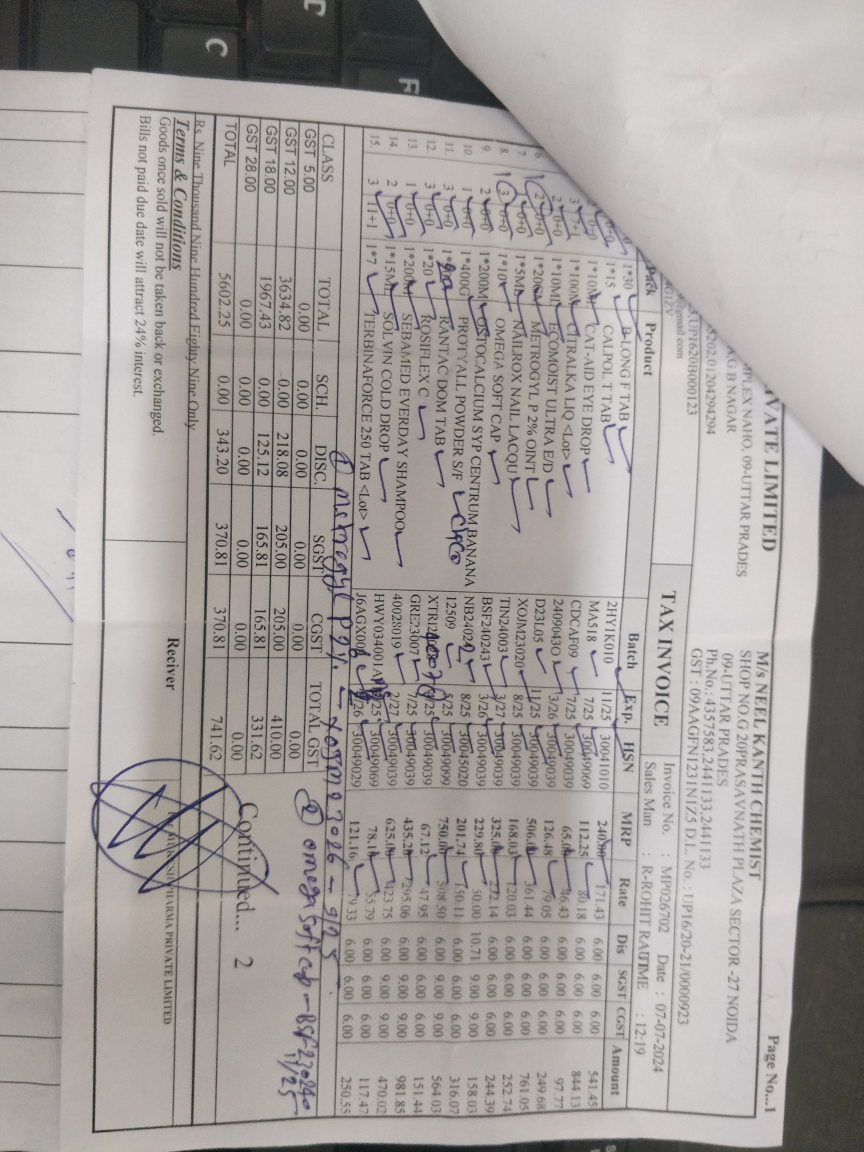 Page No...1
IVATE LIMITED
MPLEX NAHO, 09-UTTAR PRADES
AG B NAGAR
5202,01204294294
3,UP1620B000123
@gmail.com
M/s NEEL KANTH CHEMIST
SHOP NO.G 20PRASAVNATH PLAZA SECTOR -27 NOIDA
09-UTTAR PRADES
Ph.No.: 4357583,2441133,2441133
GST : 09AAGFN1231N1Z5 D.L. No. : UP16/20-21/0000923
TAX INVOICE
Invoice No. : MP026702 Date : 07-07-2024
Sales Man : R-ROHIT RAUTIME : 12:19
Pack Product Batch Exp. HSN MRP Rate Dis SGST CGST Amount
1*30 B-LONG F TAB 2HY1K010 11/25 30041010 240.00 171.43 6.00 6.00 6.00 541.45
1*15 CALPOL T TAB MA518 7/25 30049069 112.25 80.18 6.00 6.00 6.00 844.13
1*10M CAT-AID EYE DROP CDCAF09 7/25 30049039 65.00 46.43 6.00 6.00 6.00 97.77
1*100M CITRALKA LIQ <Lot> 2409043O 3/26 30049039 126.48 79.05 6.00 6.00 6.00 249.68
1*10ML ECOMOIST ULTRA E/D D23L05 11/25 30049039 506.00 361.44 6.00 6.00 6.00 761.05
6. 2 0+0 1*20GM METROGYL P 2% OINT XOJM23020 8/25 30049039 168.03 120.03 6.00 6.00 6.00 252.74
7. 1*5ML NAILROX NAIL LACQU TIN24003 3/27 30049039 325.00 232.14 6.00 6.00 6.00 244.39
8. 3 0+0 1*10 OMEGA SOFT CAP BSF240243 3/26 30049039 229.80 50.00 10.71 6.00 6.00 158.03
9. 2 0+0 1*200ML OSTOCALCIUM SYP CENTRUM BANANA NB2402 8/25 30045020 201.74 150.11 6.00 6.00 6.00 316.07
10. 1 0+0 1*400G PROTYALL POWDER S/F 12509 5/25 30049099 750.00 508.50 6.00 9.00 9.00 564.03
11. 3 0+0 RANTAC DOM TAB 30049039 67.12 47.95 6.00 6.00 6.00 151.44
12. 3 0+0 1*20 ROSIFLEX C GRE23007 7/25 30049039 435.20 295.06 6.00 9.00 9.00 981.85
13. 1 0+0 1*200M SEBAMED EVERDAY SHAMPOO 40028019 2/27 30049039 625.00 423.75 6.00 9.00 9.00 470.02
14. 2 0+0 1*15ML SOLVIN COLD DROP HWY034001A 30049069 78.10 55.79 6.00 6.00 6.00 117.47
15. 3 11+1 1*7 TERBINAFORCE 250 TAB <Lot> J6AGX00 30049029 121.16 79.33 6.00 6.00 6.00 250.55
① metrogyl P 2% - 9/25
② omega Soft cap - BSF
11/25
CLASS TOTAL SCH. DISC. SGST CGST TOTAL GST
GST 5.00 0.00 0.00 0.00 0.00 0.00 0.00
GST 12.00 3634.82 0.00 218.08 205.00 205.00 410.00
GST 18.00 1967.43 0.00 125.12 165.81 165.81 331.62
GST 28.00 0.00 0.00 0.00 0.00 0.00 0.00
TOTAL 5602.25 0.00 343.20 370.81 370.81 741.62
Continued... 2
Rs. Nine Thousand Nine Hundred Eighty Nine Only
Terms & Conditions
Goods once sold will not be taken back or exchanged.
Bills not paid due date will attract 24% interest.
Reciver
PHARMA PRIVATE LIMITED